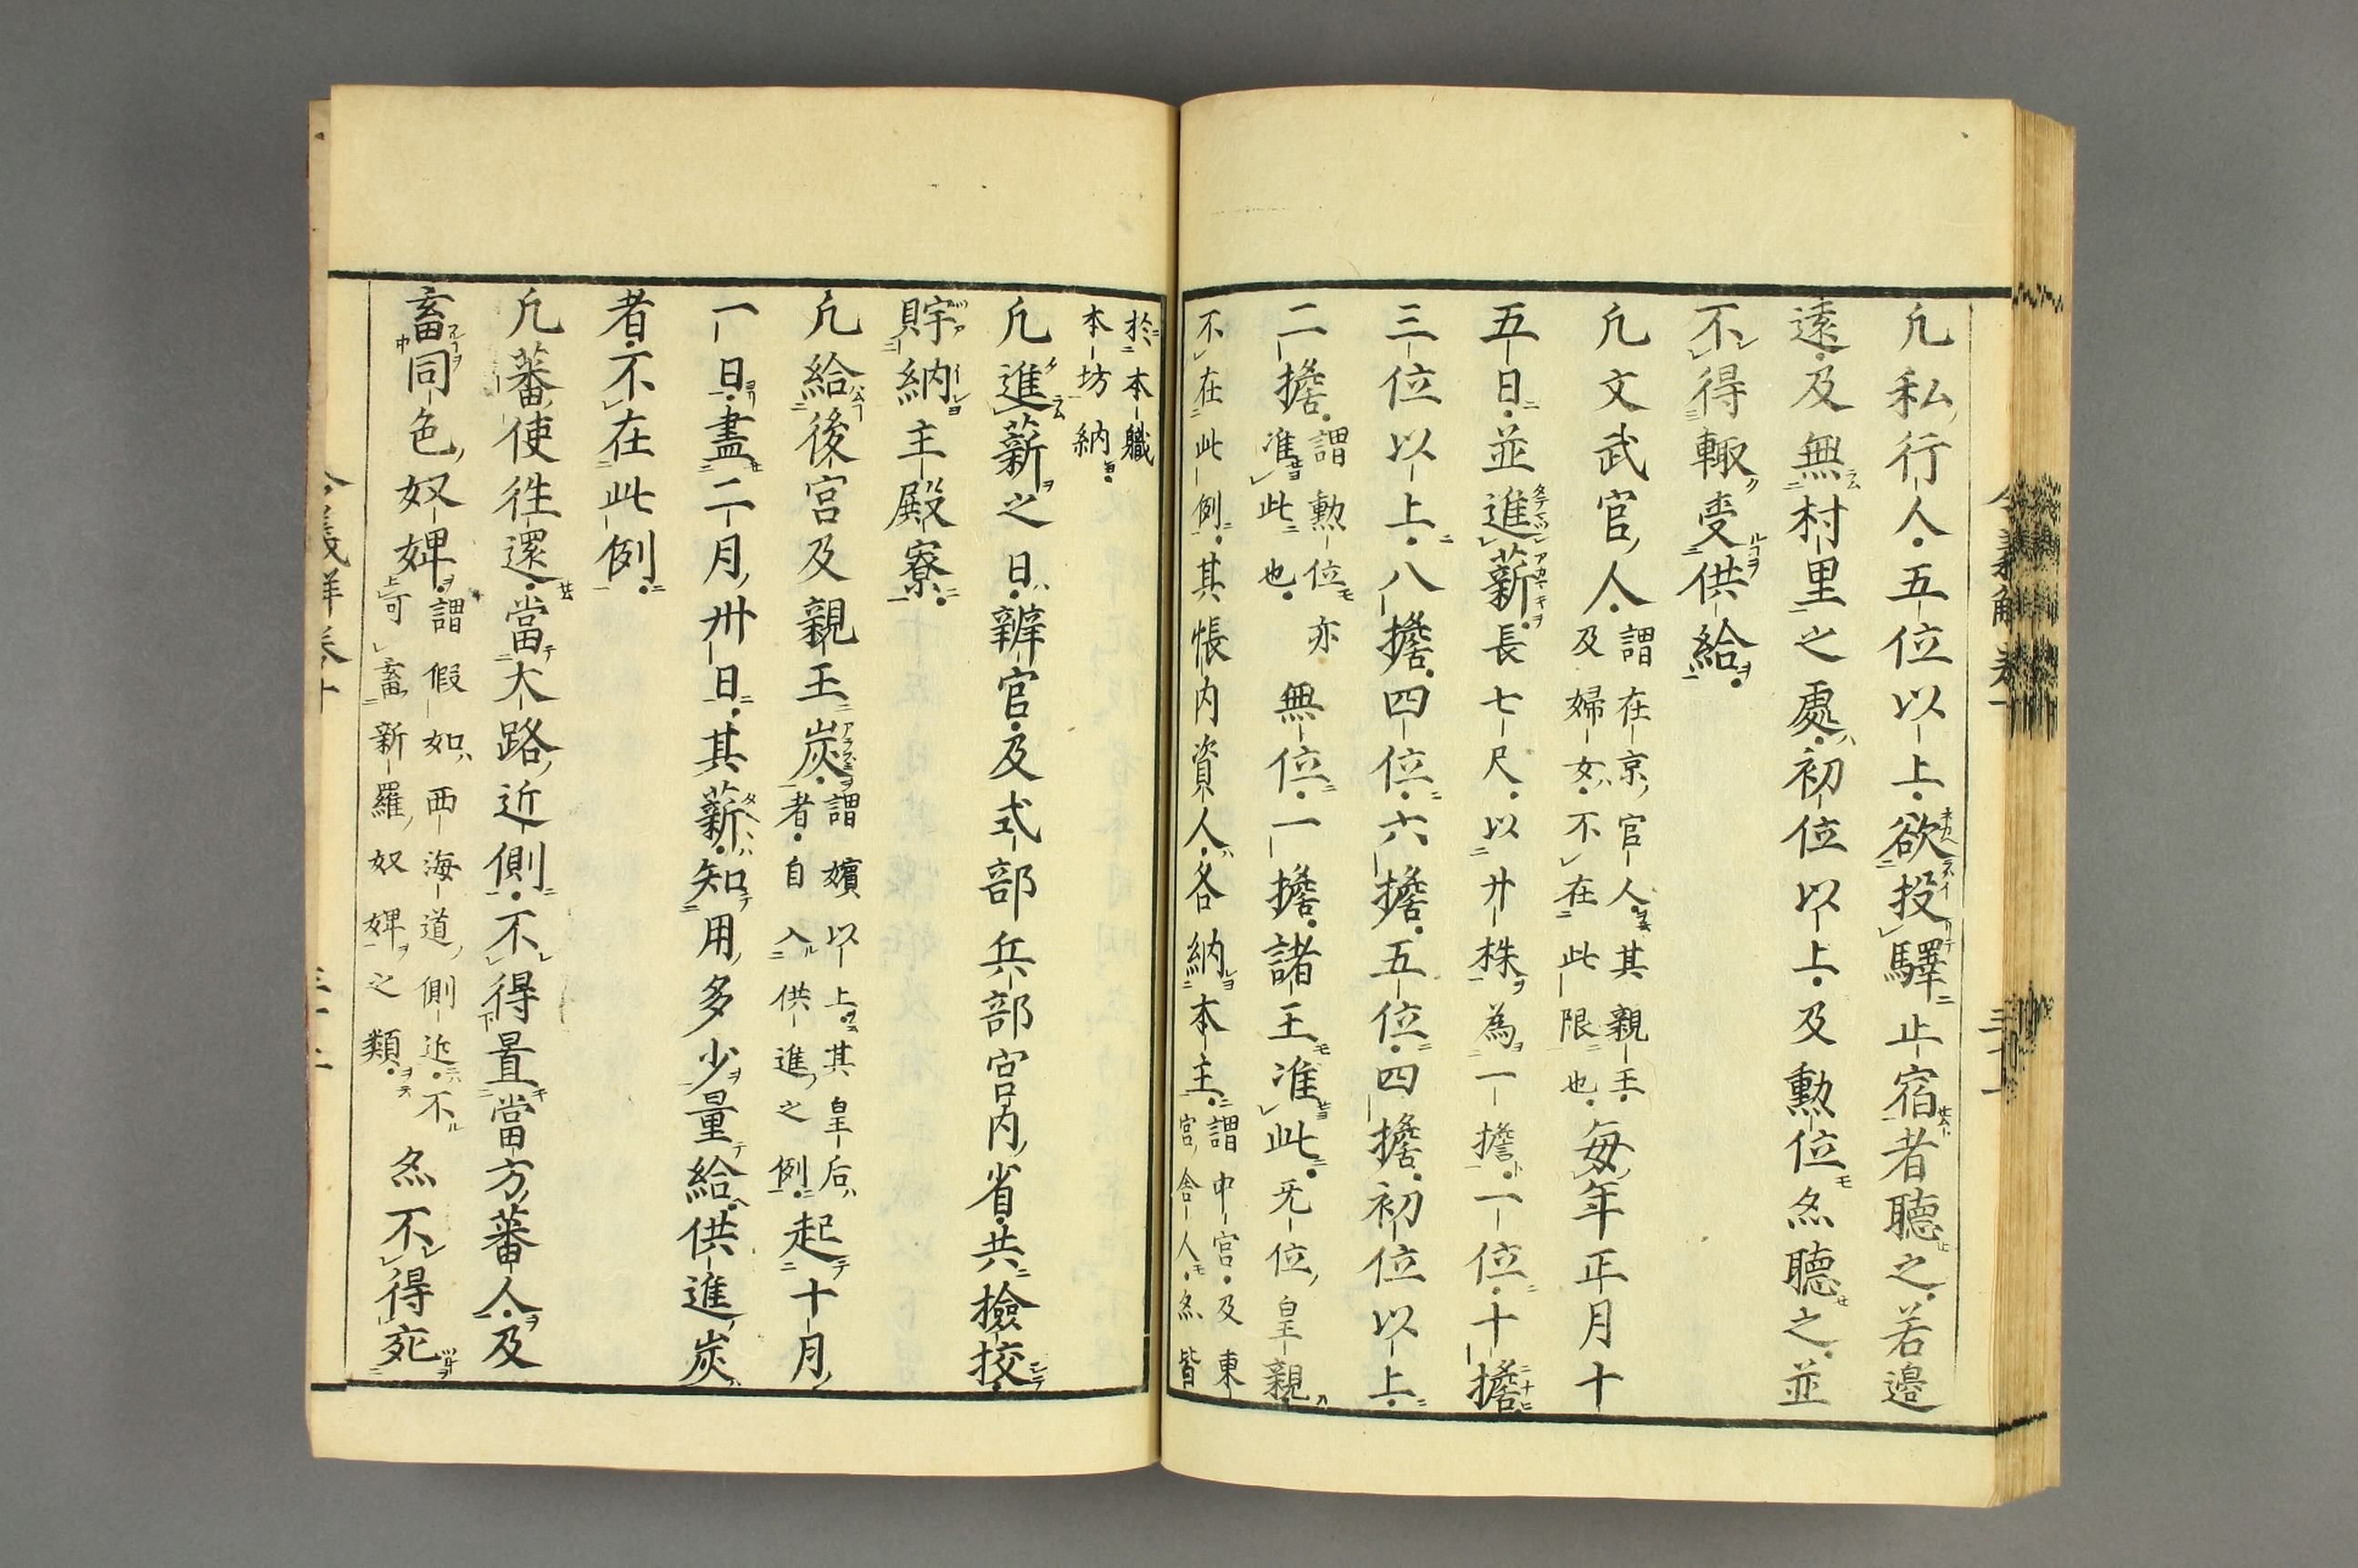 凢私行人五位以上欲投驛止宿者聽之若邉
遠及無村里之處初位以上及勲位亦聽之並
不得輙受供給
凢文武官人謂在京官人其親王
及婦女不在此限也毎年正月十
五日並進薪長七尺以廾株為一擔一位十擔
三位以上八擔四位六擔五位四擔初位以上
二擔謂勲位亦
准此也無位一擔諸王准此无位皇親
不在此例其帳内資人各納本主謂中宮及東
宮舎人亦皆
於本職
本坊納
凢進薪之日辨官及式部兵部宮内省共撿挍
貯納主殿寮
凢給後宮及親王炭謂嬪以上其皇后
者自入供進之例起十月
一日盡二月卅日其薪知用多少量給供進炭
者不在此例
凢蕃使徃還當大路近側不得置當方蕃人及
畜同色奴婢謂假如西海道側近不
可畜新羅奴婢之類亦不得宛